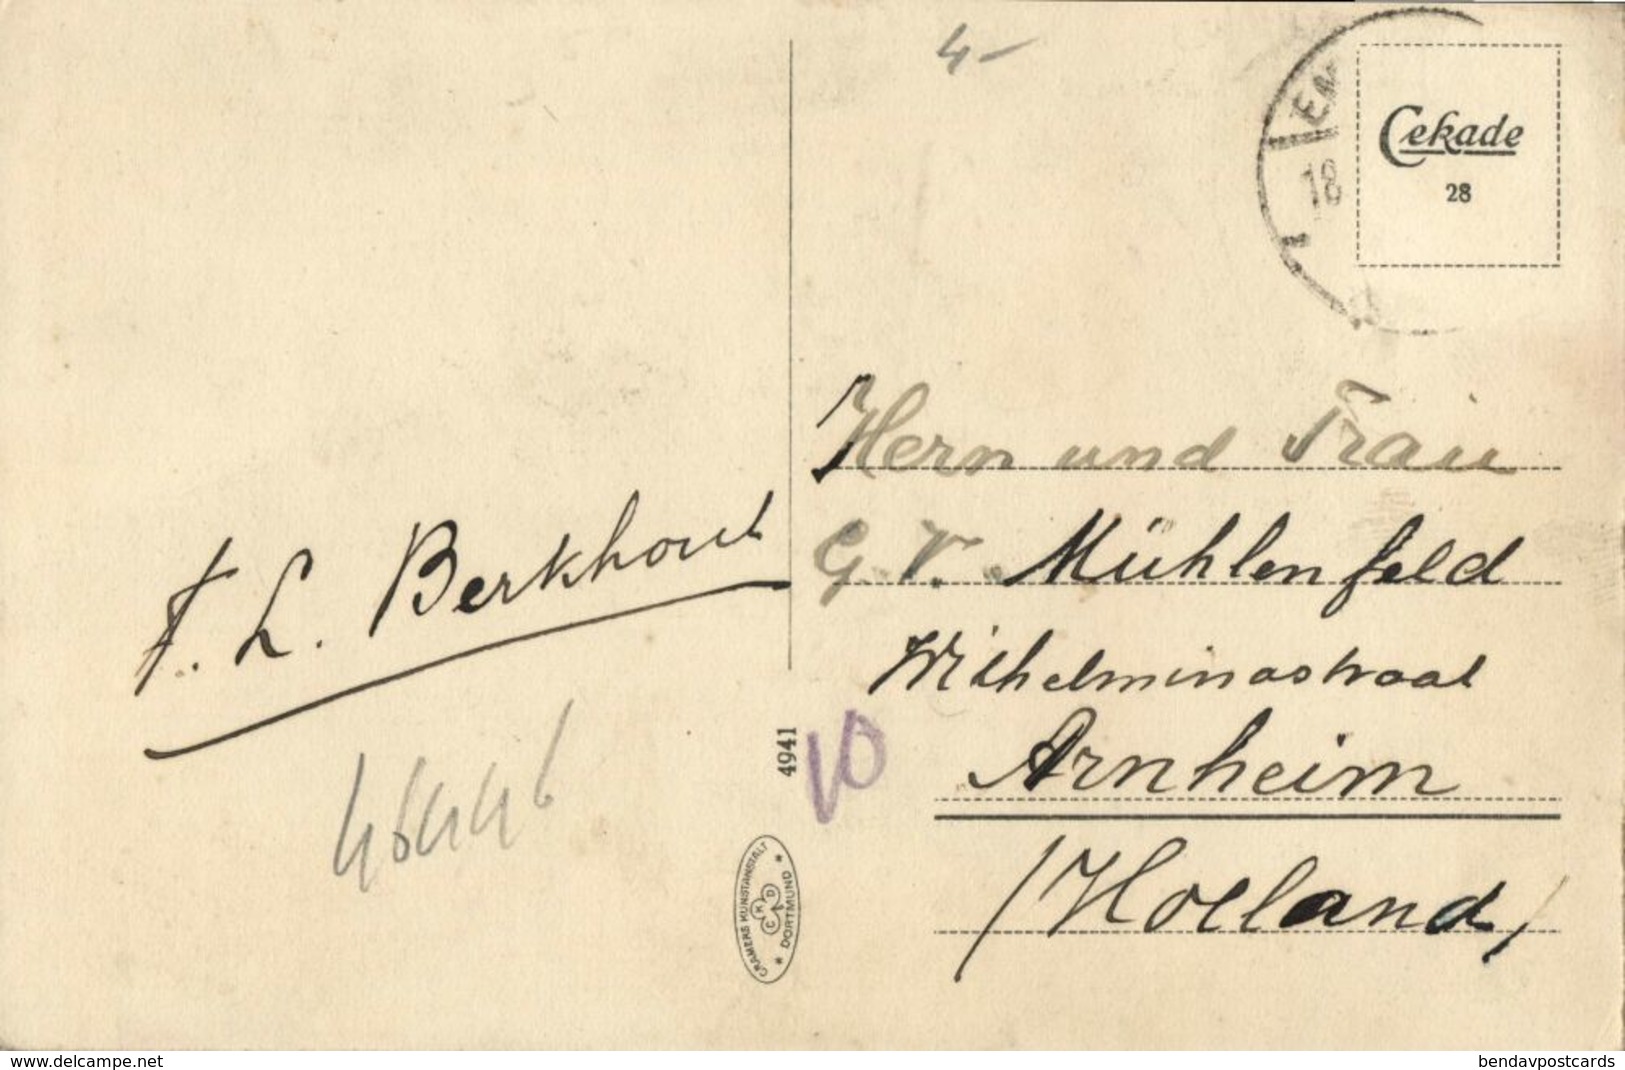 4-
EM
18
Cekade
28
Herrn und Frau
G. V. Mühlenfeld
Wilhelminastraat
Arnheim
(Holland)
F. L. Berkhout
4941
10
CRAMERS KUNSTANSTALT * DORTMUND *
CKD
www.delcampe.net
bendavpostcards